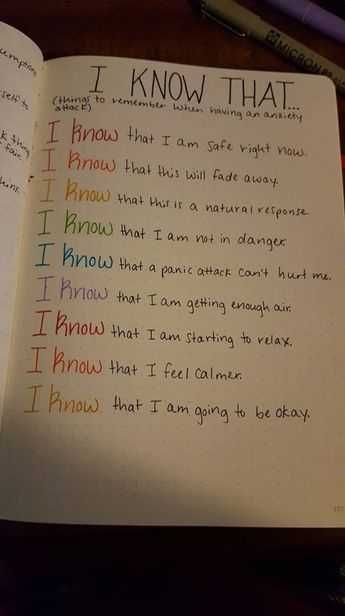 I KNOW THAT...
(things to remember when having an anxiety
attack)
I know that I am safe right now.
I know that this will fade away.
I know that this is a natural response
I know that I am not in danger.
I know that a panic attack can't hurt me.
I know that I am getting enough air.
I know that I am starting to relax.
I know that I feel calmer.
I know that I am going to be okay.
MICRON